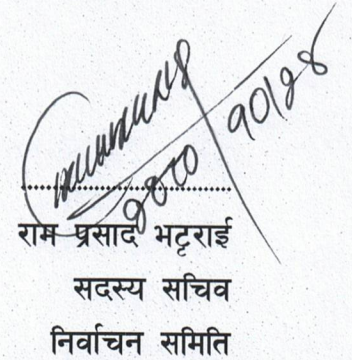 २०८०/१०/२८
राम प्रसाद भट्टराई
सदस्य सचिव
निर्वाचन समिति